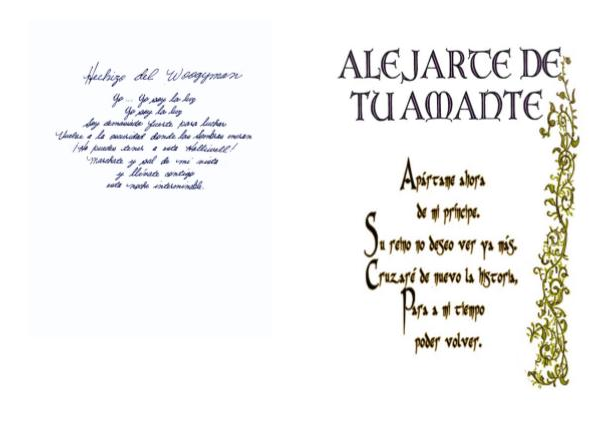 Hechizo del Woogyman
Yo... Yo soy la luz
Yo soy la luz
Soy demasiado fuerte para luchar
Vuelve a la oscuridad donde las sombras moran
¡No puedes tener a esta Halliwell!
Marchate y sal de mi vista
y llévate contigo
esta noche interminable.
ALEJARTE DE
TU AMANTE
Apártame ahora
de mi príncipe.
Su reino no deseo ver ya más.
Cruzaré de nuevo la historia,
Para a mi tiempo
poder volver.